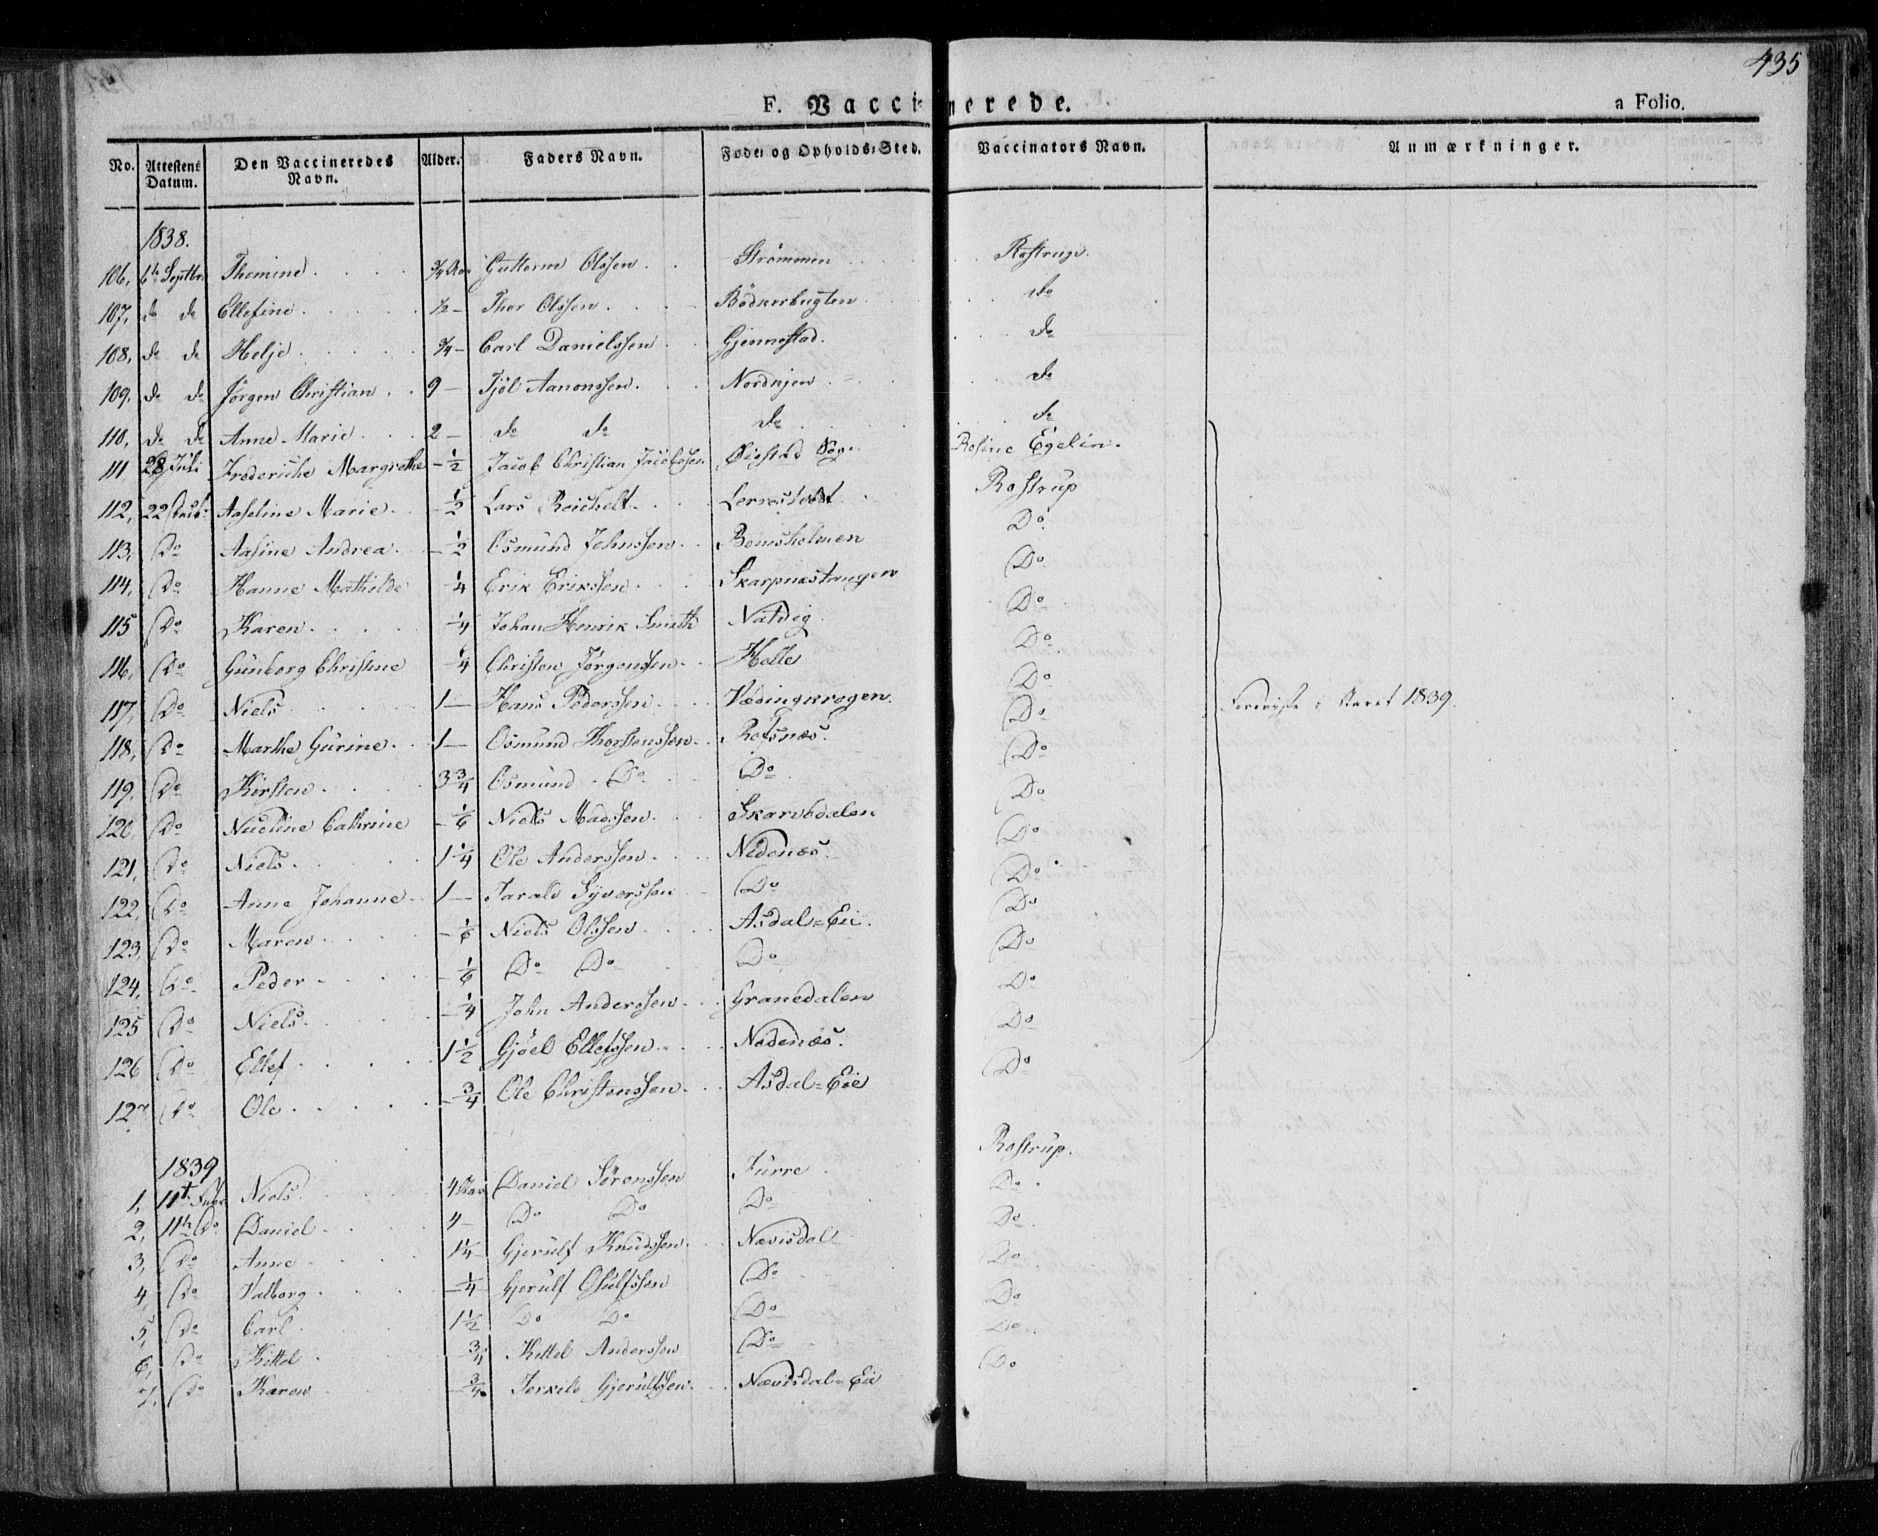 435
F. Vaccinerede. a Folio.
No. Attestens Datum. Den Vaccineredes Navn. Alder. Faders Navn. Føde og Opholds-Sted. Vaccinators Navn. Anmærkninger.
1838.
106, 6te Septbr Thomine 3/4 Aar Guttorm Olssen Strømmen Rostrup.
107, do do Ellefine 1/2 - Thor Olssen Bödkerbugten do
108, do do Helje 3/4 - Carl Danielssen Gjennestad. do
109, do do Jörgen Christian 9 - Tjöl Aanonssen. do
110, do do Anne Marie 2 - do do do do
111 28 Juli Frederikke Margrethe - 1/2 Jacob Christian Jacobssen Øiestad Sogn Rosine Egelin.
112, 22 Aaseline Marie - 1/2 Lars Reichelt Rostrup
113, Do Aasine Andrea - 1/2 Osmund Johnssen Bomsholmen Do
114, Do Hanne Mathilde 1/4 Erik Erikssen Skarpnæstangen Do
115 Do Karen - 1/4 Johan Henrik Smith Natvig Do
116, Do Gunborg Christine - 1/4 Christen Jörgenssen Helle Do
117, Do Niels 1 - Hans Pederssen Vædingkrogen. Do
118, Do Marthe Gurine 1 - Osmund Thorstenssen Refsnæs. Do Indexiste i Aaret 1839.
119, Do Kirsten 3 3/4 Osmund Do Do Do
120, Do Cathrine - 1/6 Niels Madssen Skarvedalen Do
121, Do Niels 1 1/4 Ole Anderssen Nedenæs. Do
122, Do Anne Johanne 1 - Tarald Syverssen Do Do
123, Do Maren - 1/6 Niels Olssen Asdal-Eie. Do
124, Do Peder - 1/6 Do Do Do Do
125 Do Niels - 1/4 John Anderssen Granedalen Do
126 Do Ellef 1 1/2 Gjöel Ellefssen Nedenæs. Do
127 Do Ole - 3/4 Ole Christenssen Asdal-Eie Do
1839
1, 11te Niels 4 Aar Daniel Sörenssen Furre Rostrup.
2, 11te Do Daniel 4 - Do Do Do Do
3, Do Anne 1 1/4 Gjerulf Knudssen Nævisdal Do
4, Do Valborg - 1/4 Gjerulf Osulfssen Do Do
5, Do Carl 1 1/2 Do Do Do Do
6, Do Kittel - 3/4 Kittel Anderssen Do Do
7, Do Karen - 3/4 Terkild Gjerulfssen Nævisdal-Eie Do